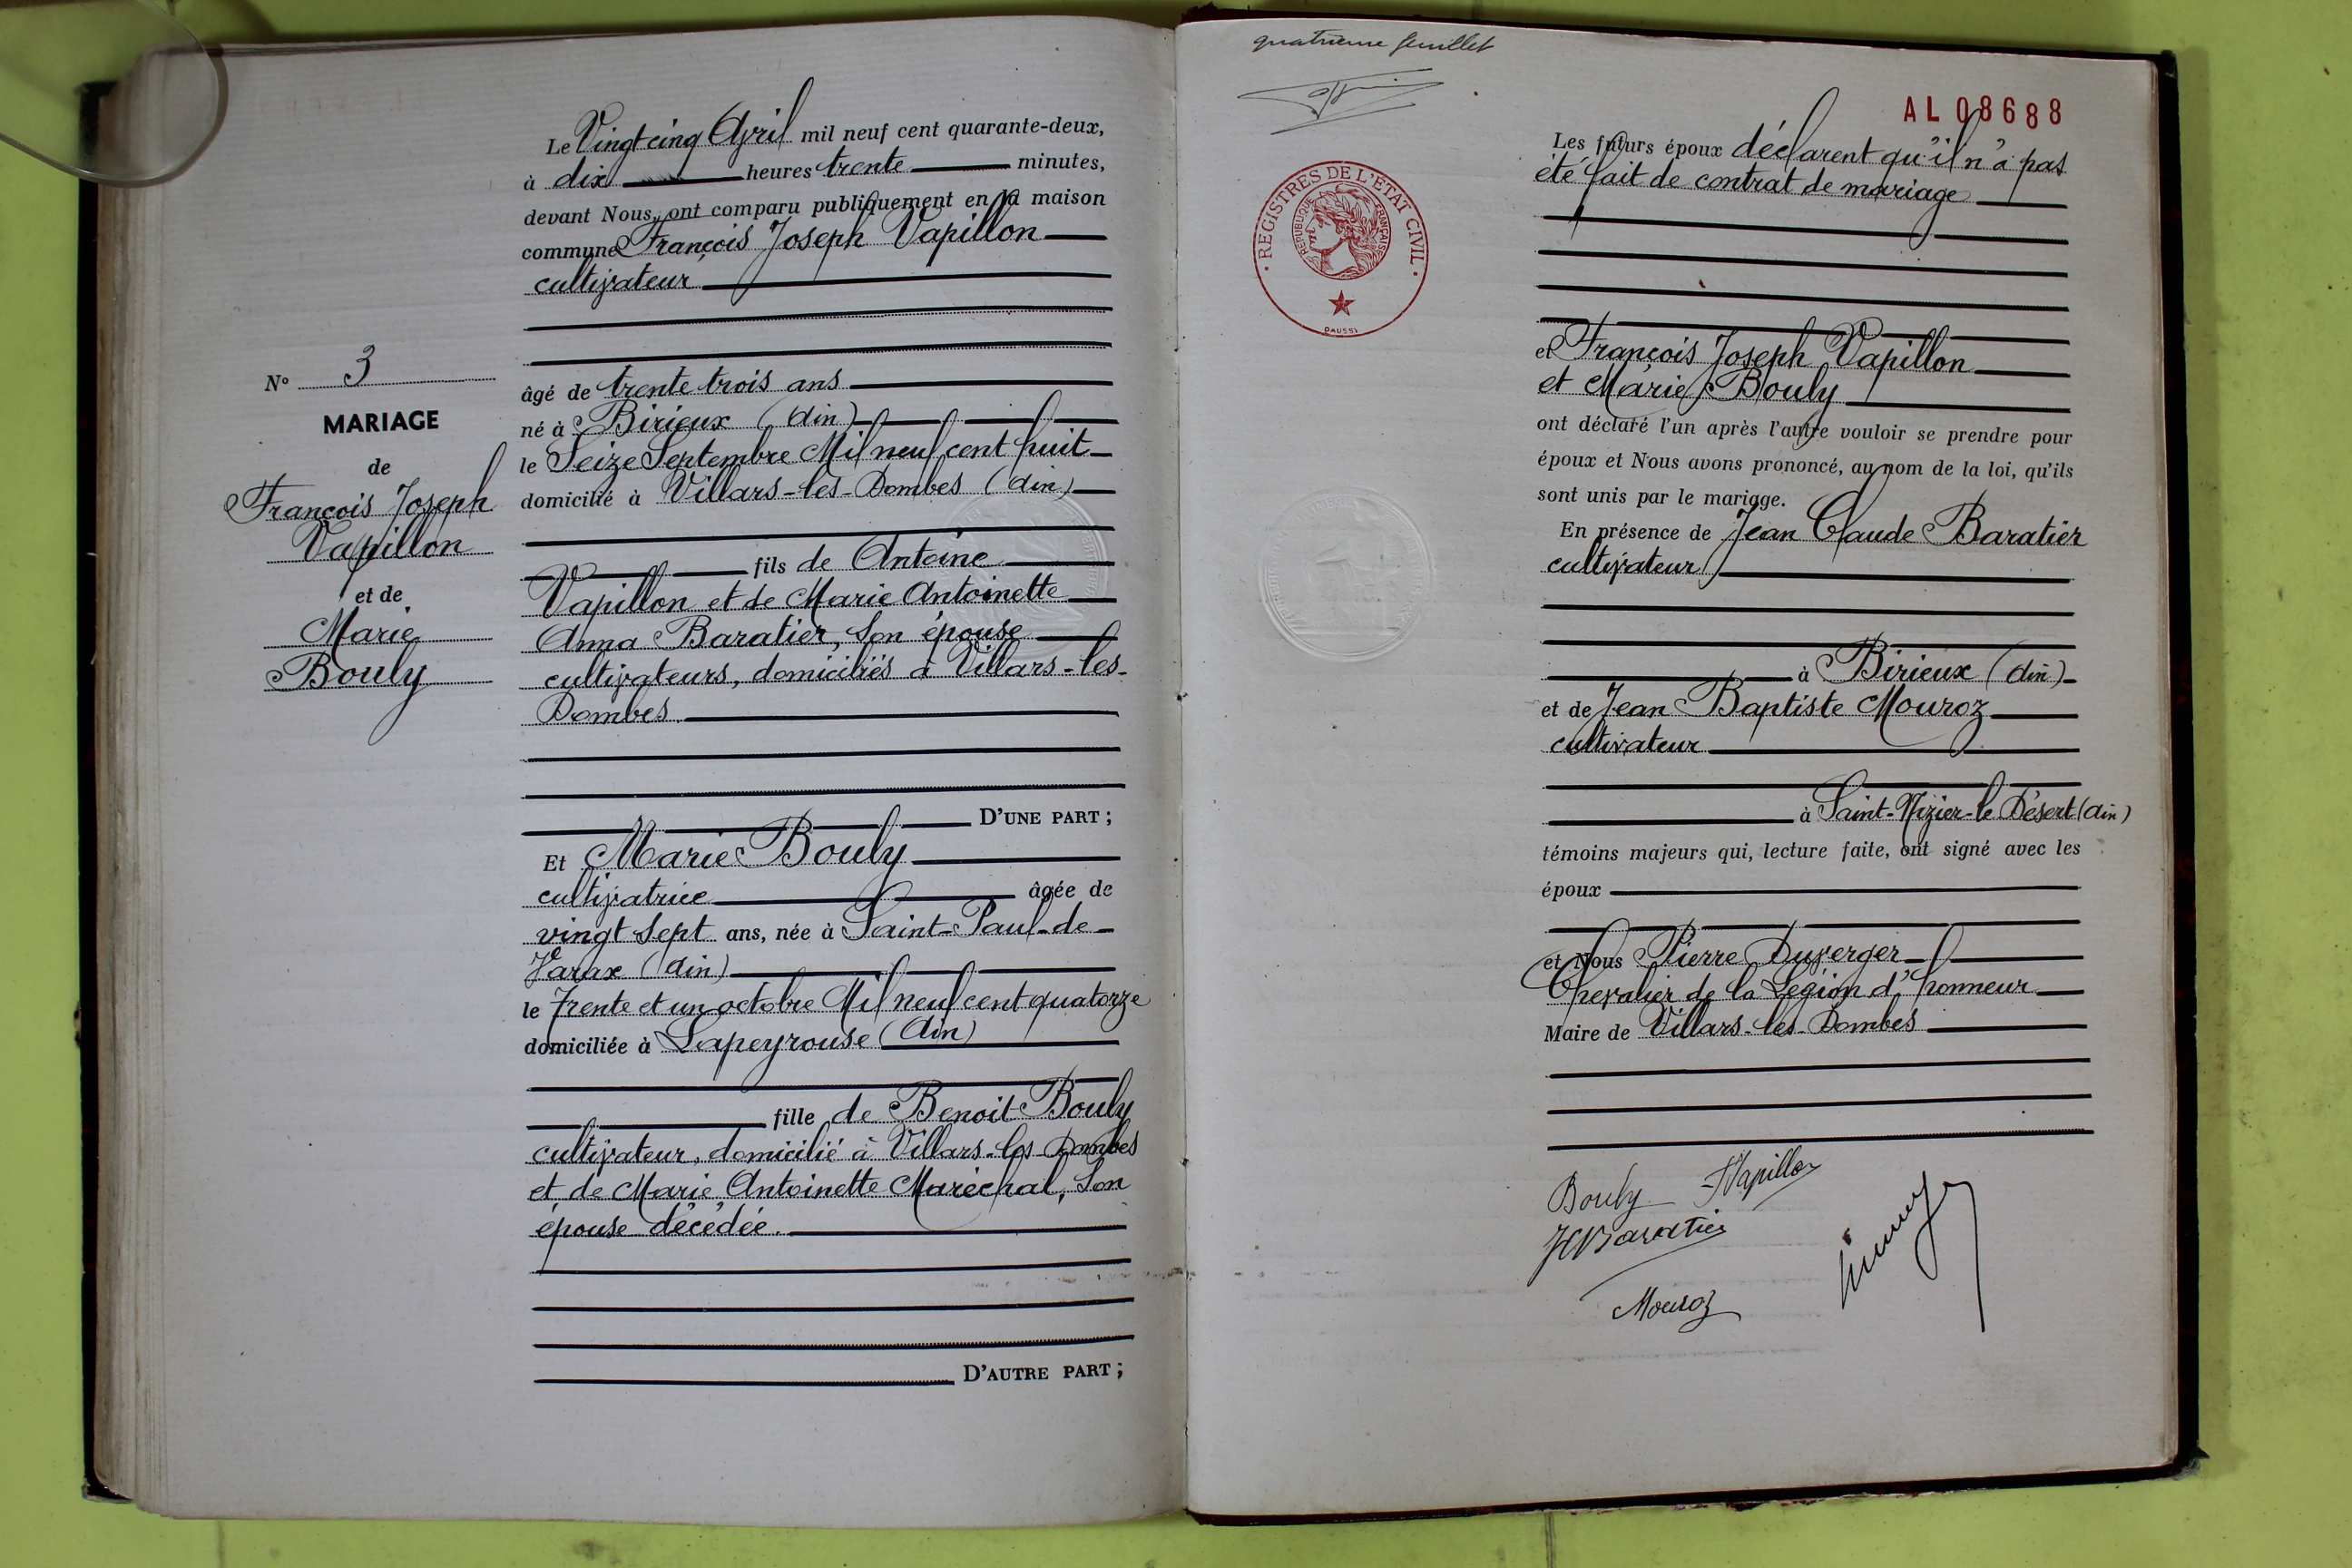 Le Vingt cinq Avril mil neuf cent quarante-deux,
à dix heures trente minutes,
devant Nous, ont comparu publiquement en la maison
commune François Joseph Vapillon
cultivateur
âgé de trente trois ans
né à Birieux (Ain)
le Seize Septembre Mil neuf cent huit
domicilié à Villars-les-Dombes (Ain)
fils de Antoine
Vapillon et de Marie Antoinette
Anna Baratier, son épouse
cultivateurs, domiciliés à Villars-les-
Dombes.
D'UNE PART ;
Et Marie Bouly
cultivatrice âgée de
vingt sept ans, née à Saint-Paul-de-
Varax (Ain)
le Trente et un octobre Mil neuf cent quatorze
domiciliée à Lapeyrouse (Ain)
fille de Benoit Bouly
cultivateur, domicilié à Villars-les-Dombes
et de Marie Antoinette Maréchal, son
épouse décédée.
D'AUTRE PART ;
N° 3
MARIAGE
de
François Joseph
Vapillon
et de
Marie
Bouly
quatrième feuillet
AL 08688
REGISTRES DE L'ETAT CIVIL
REPUBLIQUE FRANÇAISE
DAUSSY
Les futurs époux déclarent qu'il n'a pas
été fait de contrat de mariage
et François Joseph Vapillon
et Marie Bouly
ont déclaré l'un après l'autre vouloir se prendre pour
époux et Nous avons prononcé, au nom de la loi, qu'ils
sont unis par le mariage.
En présence de Jean Claude Baratier
cultivateur
à Birieux (Ain)
et de Jean Baptiste Mouroz
cultivateur
à Saint-Nizier-le Désert (Ain)
témoins majeurs qui, lecture faite, ont signé avec les
époux
et Nous Pierre Duverger
Chevalier de la Légion d'honneur
Maire de Villars-les-Dombes
Bouly FVapillon
JCBaratier
Mouroz